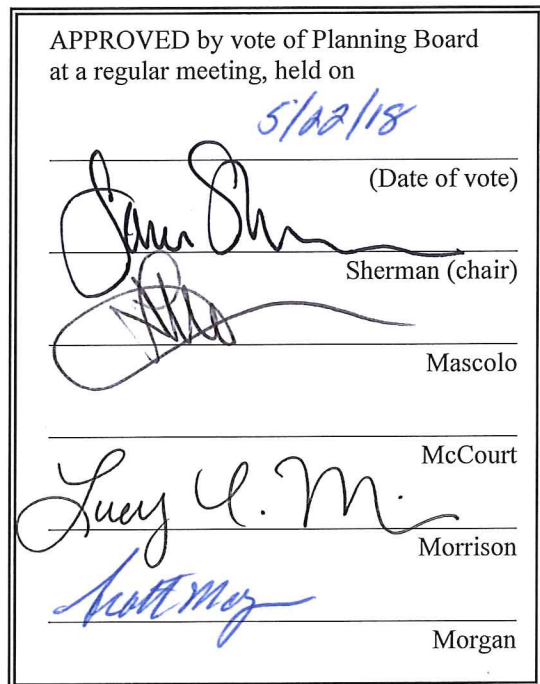 APPROVED by vote of Planning Board
at a regular meeting, held on
5/22/18
(Date of vote)
Sherman (chair)
Mascolo
McCourt
Lucy Y. M.
Morrison
Scott Mor
Morgan